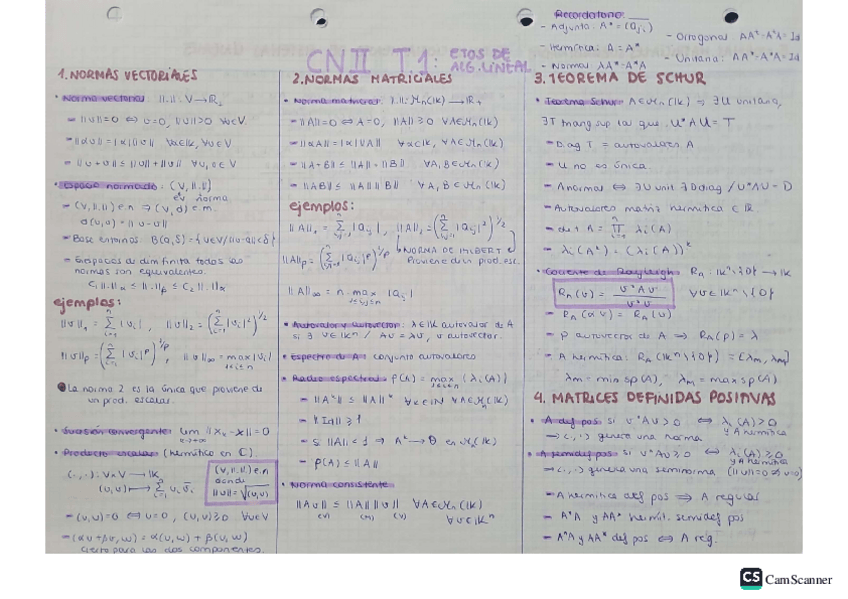 Recordatorio:
- Adjunta: A* = (ā_ji)
- Hermítica: A = A*
- Normal: AA* = A*A
- Ortogonal: AAᵗ = AᵗA = Id
- Unitaria: AA* = A*A = Id
CN II T1: CTOS DE ALG. LINEAL
1. NORMAS VECTORIALES
• Norma vectorial: ||·||: V → R₊
- ||v|| = 0 ⇔ v = 0, ||v|| ≥ 0 ∀v∈V
- ||αv|| = |α| ||v|| ∀α∈K, ∀v∈V
- ||u+v|| ≤ ||u|| + ||v|| ∀u,v∈V
• Espacio normado: (V, ||·||)
e.v norma
- (V, ||·||) e.n ⇒ (V, d) e.m.
d(u,v) = ||v-u||
- Base entornos:
- En espacios de dim finita todas las
normas son equivalentes.
C₁||·||α ≤ ||·||β ≤ C₂||·||α
ejemplos:
||v||₁ = Σ |vᵢ| , ||v||₂ = (Σ |vᵢ|²)^1/2
||v||p = (Σ |vᵢ|^p)^1/p , ||v||∞ = max |vᵢ|
● La norma 2 es la única que proviene de
un prod. escalar.
• Sucesión convergente: lim ||x_k - x|| = 0
• Producto escalar (hermítico en ℂ).
(·,·): V×V → K
(u,v) → Σ uᵢ v̄ᵢ
(V, ||·||) e.n
donde
||v|| = √(v,v)
- (v,v) = 0 ⇔ v = 0, (v,v) ≥ 0 ∀v∈V
- (αu+βv, w) = α(u,w) + β(v,w)
cierto para las dos componentes.
2. NORMAS MATRICIALES
• Norma matricial: ||·||: Mn(K) → R₊
- ||A|| = 0 ⇔ A = 0, ||A|| ≥ 0 ∀A∈Mn(K)
- ||αA|| = |α| ||A|| ∀α∈K, ∀A∈Mn(K)
- ||A+B|| ≤ ||A|| + ||B|| ∀A,B∈Mn(K)
- ||AB|| ≤ ||A|| ||B|| ∀A,B∈Mn(K)
ejemplos:
||A||₁ = Σ |aᵢⱼ| , ||A||₂ = (Σ |aᵢⱼ|²)^1/2
||A||p = (Σ |aᵢⱼ|^p)^1/p
NORMA DE HILBERT
Proviene de un prod. esc.
||A||∞ = n · max |aᵢⱼ|
• Autovalor y autovector: λ∈K autovalor de A
si ∃ v∈Kⁿ / Av = λv, v autovector.
• Espectro de A = conjunto autovalores
• Radio espectral: ρ(A) = max {λᵢ(A)}
- ||Aᵏ|| ≤ ||A||ᵏ ∀k∈N ∀A∈Mn(K)
- ||Id|| ≥ 1
- si ||A|| < 1 ⇒ Aᵏ → 0 en Mn(K)
- ρ(A) ≤ ||A||
• Norma consistente
||Av|| ≤ ||A|| ||v|| ∀A∈Mn(K)
(v) (m) (v) ∀v∈Kⁿ
3. TEOREMA DE SCHUR
• Teorema Schur: A∈Mn(K) ⇒ ∃U unitaria,
∃T triang sup tal que U*AU = T
- Diag T = autovalores A
- U no es única.
- A normal ⇔ ∃U unit. ∃D diag / U*AU = D
- Autovalores matriz hermítica ∈ R.
- det A = Π λᵢ(A)
- λᵢ(Aᵏ) = (λᵢ(A))ᵏ
• Cociente de Rayleigh: R_A: Kⁿ\{0} → K
R_A(v) = v*Av / v*v ∀v∈Kⁿ\{0}
- R_A(αv) = R_A(v)
- p autovector de A ⇒ R_A(p) = λ
- A hermítica: R_A(Kⁿ\{0}) = [λm, λM]
λm = min sp(A), λM = max sp(A)
4. MATRICES DEFINIDAS POSITIVAS
• A def pos: si v*Av > 0 ⇔ λᵢ(A) > 0
y A hermítica
→ (·,·) genera una norma
• A semidef pos: si v*Av ≥ 0 ⇔ λᵢ(A) ≥ 0
y A hermítica
→ (·,·) genera una seminorma (||v|| = 0 ⇏ v = 0)
- A hermítica def pos ⇒ A regular
- A*A y AA* hermit. semidef pos
- A*A y AA* def pos ⇔ A reg.
CS CamScanner